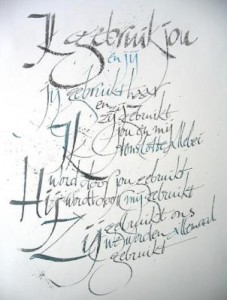 Ik gebruik jou
en jij
jij gebruikt haar
en
zij gebruikt
jou en mij
Ik
Hij wordt door jou gebruikt
wordt door mij gebruikt
Zij gebruikt ons
we worden allemaal
gebruikt